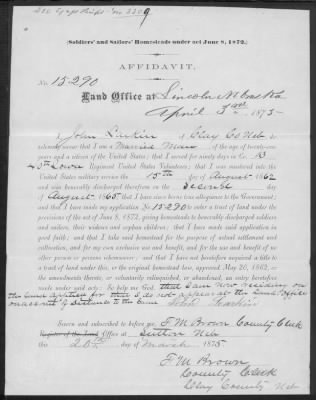 (Soldiers' and Sailors' Homesteads under act June 8, 1872.)
AFFIDAVIT.
No. 15290
Land Office at Lincoln Nebraska
April 3rd 1875
I, John Larkin of Clay Co Neb do
solemnly swear that I am a Married Man of the age of twenty-one
years and a citizen of the United States; that I served for ninety days in Co. B
Iowa Regiment United States Volunteers; that I was mustered into the
United States military service the 15th day of August 1862
and was honorably discharged therefrom on the Second day
of August 1865 that I have since borne true allegiance to the Government;
and that I have made my application No 15290 to enter a tract of land under the provisions
of the act of June 8, 1872, giving homesteads to honorably discharged soldiers
and sailors, their widows and orphan children; that I have made said application in
good faith; and that I take said homestead for the purpose of actual settlement and
cultivation, and for my own exclusive use and benefit, and for the use and benefit of no
other person or persons whomsoever; and that I have not heretofore acquired a title to
a tract of land under this, or the original homestead law, approved May 20, 1862, or
the amendments thereto, or voluntarily relinquished, or abandoned, an entry heretofore
made under said acts: So help me God, that I am now residing on
the land applied for that I do not appear at the Land Office
on account of distance to the same John Larkin
Sworn and subscribed to before me, F M Brown County Clerk
Register of the Land Office at Sutton Neb
this day of March 1875
F M Brown
County Clerk
Clay County Neb